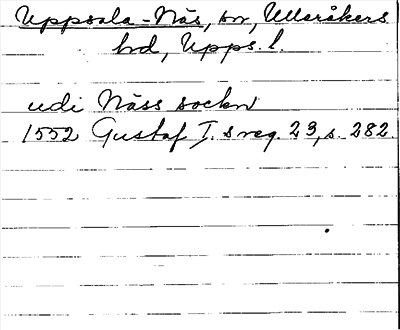 Uppsala-Näs, sn, Ulleråkers
hd, Upps. l.
udi Näss sockn
1552 Gustaf I. s reg. 23, s. 282.